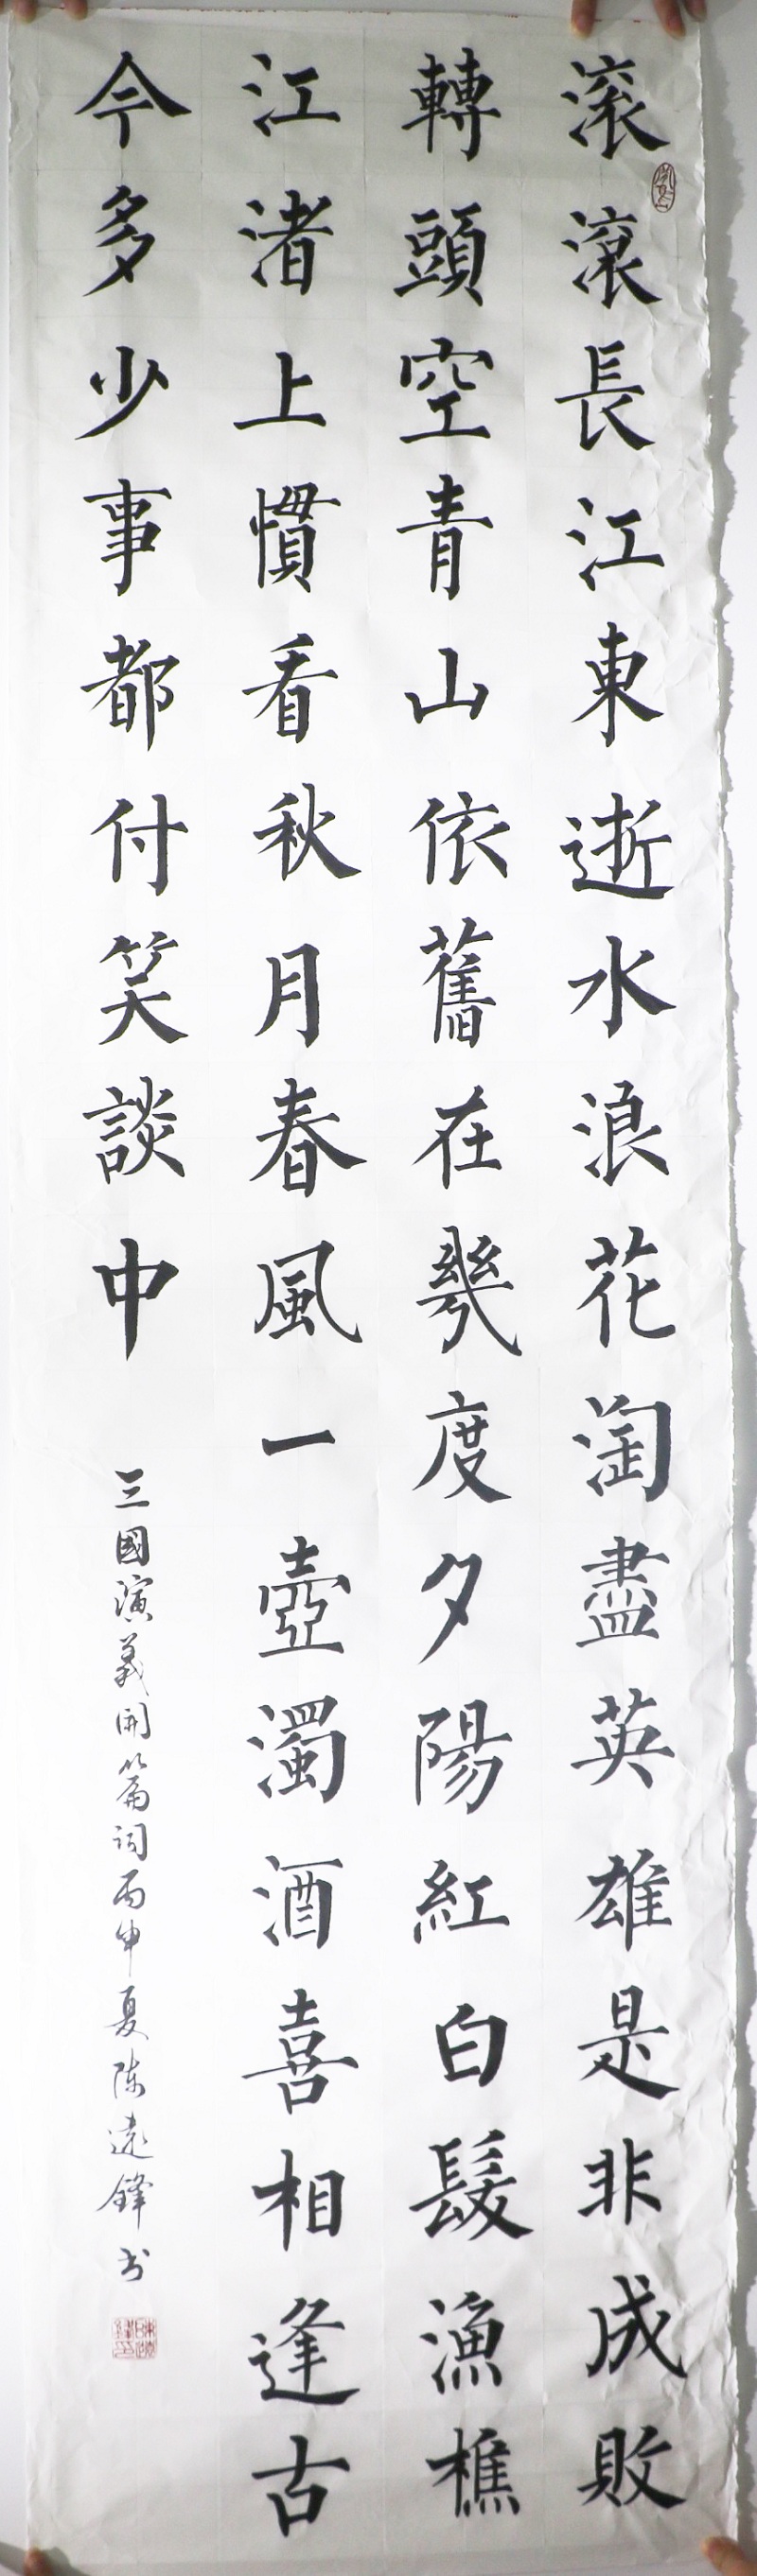 滚滾長江東逝水浪花淘盡英雄是非成敗
轉頭空青山依舊在幾度夕陽紅白髮漁樵
江渚上慣看秋月春風一壺濁酒喜相逢古
今多少事都付笑談中
三國演義開篇詞丙申夏陈遠鋒书